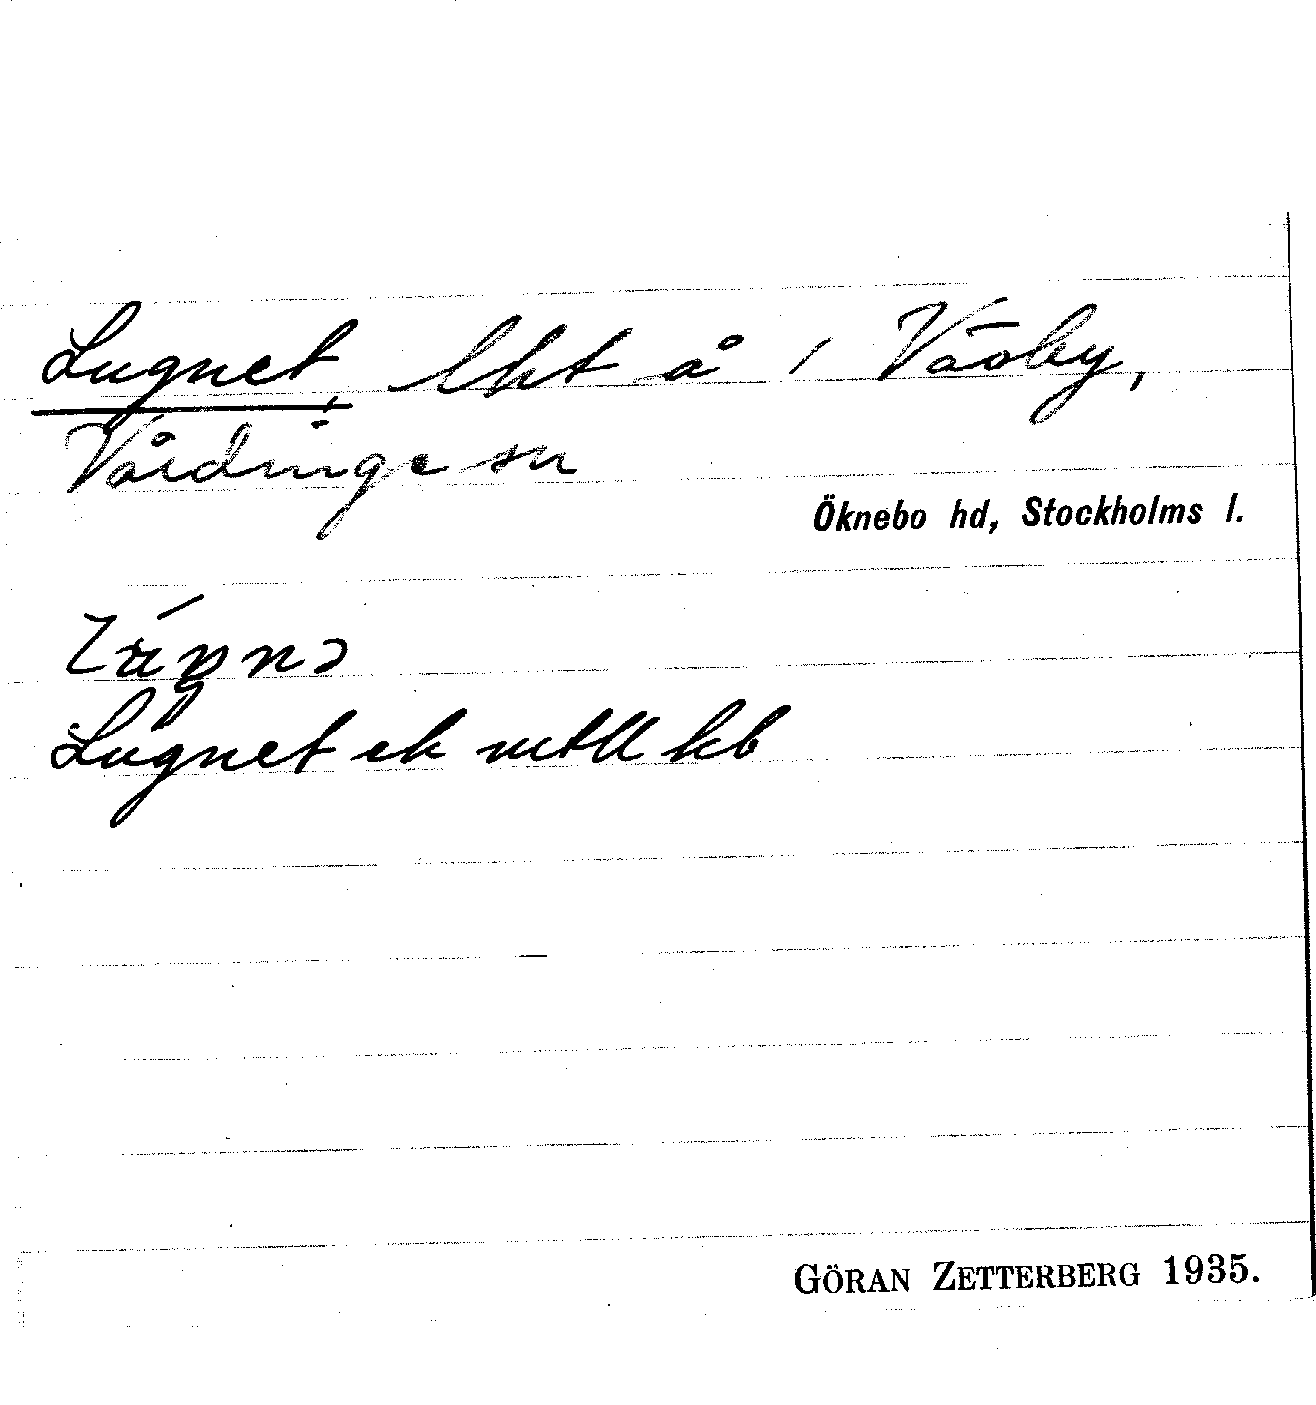 Lugnet, lht å 1 Väsby,
Vårdinge sn
Öknebo hd, Stockholms l.
Lugnet ek mtll kb
GÖRAN ZETTERBERG 1935.